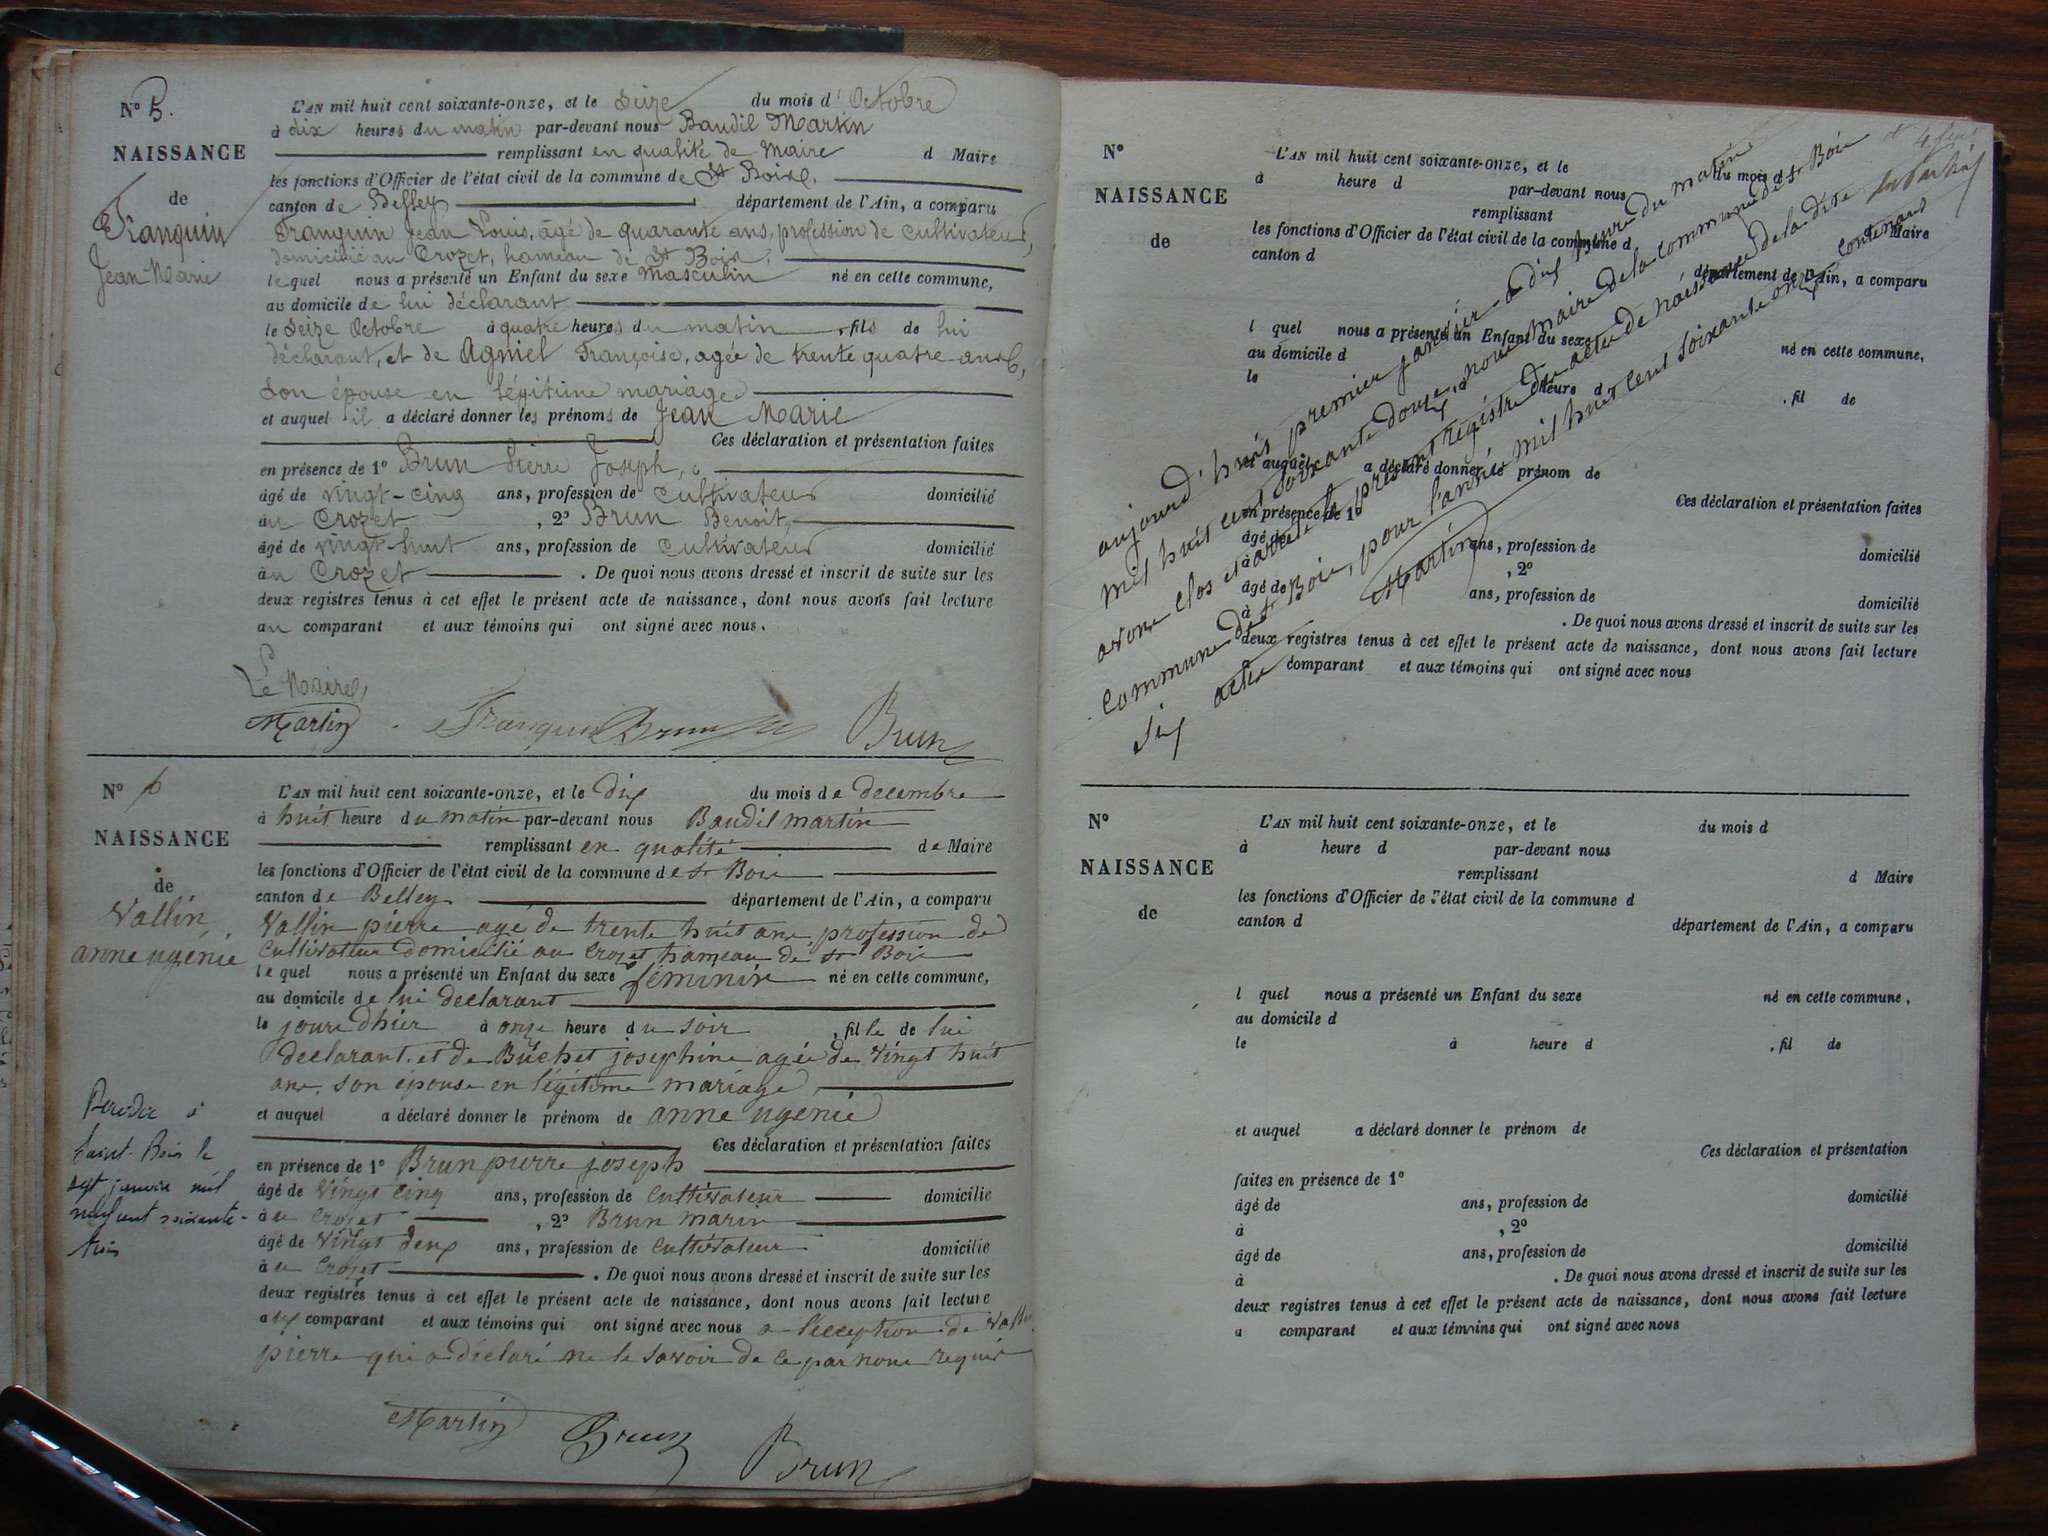 N° 5.
NAISSANCE
de
Franquin
Jean-Marie
L'AN mil huit cent soixante-onze, et le Seize du mois d'Octobre
à dix heures du matin par-devant nous Baudil Martin
remplissant en qualité de Maire d Maire
les fonctions d'Officier de l'état civil de la commune de St Bois,
canton de Belley département de l'Ain, a comparu
Franquin Jean Louis, âgé de quarante ans, profession de cultivateur,
domicilié au Crozet, hameau de St Bois,
lequel nous a présenté un Enfant du sexe masculin né en cette commune,
au domicile de lui déclarant
le Seize Octobre à quatre heures du matin, fils de lui
déclarant, et de Agniel Françoise, agée de trente quatre ans,
Son épouse en légitime mariage
et auquel il a déclaré donner les prénoms de Jean Marie
Ces déclaration et présentation faites
en présence de 1° Brun Pierre Joseph,
âgé de vingt-cinq ans, profession de cultivateur domicilié
au Crozet, 2° Brun Benoit,
âgé de vingt-huit ans, profession de cultivateur domicilié
àu Crozet. De quoi nous avons dressé et inscrit de suite sur les
deux registres tenus à cet effet le présent acte de naissance, dont nous avons fait lecture
au comparant et aux témoins qui ont signé avec nous.
Le Maire,
Martin Franquin Brun Brun
N° 6
NAISSANCE
de
Vallin
anne ugénie
L'AN mil huit cent soixante-onze, et le dix du mois de decembre
à huit heure du matin par-devant nous Baudil martin
remplissant en qualité de Maire
les fonctions d'Officier de l'état civil de la commune de St Bois
canton de Belley département de l'Ain, a comparu
Vallin pierre agé de trente huit ans profession de
Cultivateur domicilié au Crozet hameau de St Bois
lequel nous a présenté un Enfant du sexe féminin né en cette commune,
au domicile de lui declarant
le jour d'hier à onze heure du soir, fille de lui
declarant et de Buchet josephine agée de Vingt huit
ans, son épouse en légitime mariage,
et auquel a déclaré donner le prénom de anne ugenie
Ces déclaration et présentation faites
en présence de 1° Brun pierre joseph
âgé de Vingt cinq ans, profession de Cultivateur domicilié
àu Crozet, 2° Brun marin
âgé de Vingt deux ans, profession de Cultivateur domicilié
àu Crozet. De quoi nous avons dressé et inscrit de suite sur les
deux registres tenus à cet effet le présent acte de naissance, dont nous avons fait lecture
aux comparant et aux témoins qui ont signé avec nous a l'éception de Vallin
pierre qui a déclaré ne le savoir de ce par nous requis
Martin Brun Brun
Décédée à
Saint-Bois le
sept janvier mil
neuf cent soixante-
trois
N°
NAISSANCE
de
L'AN mil huit cent soixante-onze, et le du mois d
à heure d par-devant nous
remplissant d Maire
les fonctions d'Officier de l'état civil de la commune d
canton d département de l'Ain, a comparu
l quel nous a présenté un Enfant du sexe né en cette commune,
au domicile d
le heure d, fil de
et auquel a déclaré donner le prénom de
Ces déclaration et présentation faites
en présence de 1°
âgé de ans, profession de domicilié
à, 2°
âgé de ans, profession de domicilié
à. De quoi nous avons dressé et inscrit de suite sur les
deux registres tenus à cet effet le présent acte de naissance, dont nous avons fait lecture
comparant et aux témoins qui ont signé avec nous
aujourd'huis premier janvier a dix heure du matin
mil huit cent soixante douze, nous maire de la commune de St Bois
avons clos et arreté le présent registre des actes de naissance de la dite
commune de St Bois, pour l'année mil huit cent soixante onze contenant
six actes Martin
N°
NAISSANCE
de
L'AN mil huit cent soixante-onze, et le du mois d
à heure d par-devant nous
remplissant d Maire
les fonctions d'Officier de l'état civil de la commune d
canton d département de l'Ain, a comparu
l quel nous a présenté un Enfant du sexe né en cette commune,
au domicile d
le à heure d, fil de
et auquel a déclaré donner le prénom de
Ces déclaration et présentation
faites en présence de 1°
âgé de ans, profession de domicilié
à, 2°
âgé de ans, profession de domicilié
à. De quoi nous avons dressé et inscrit de suite sur les
deux registres tenus à cet effet le présent acte de naissance, dont nous avons fait lecture
a comparant et aux témoins qui ont signé avec nous